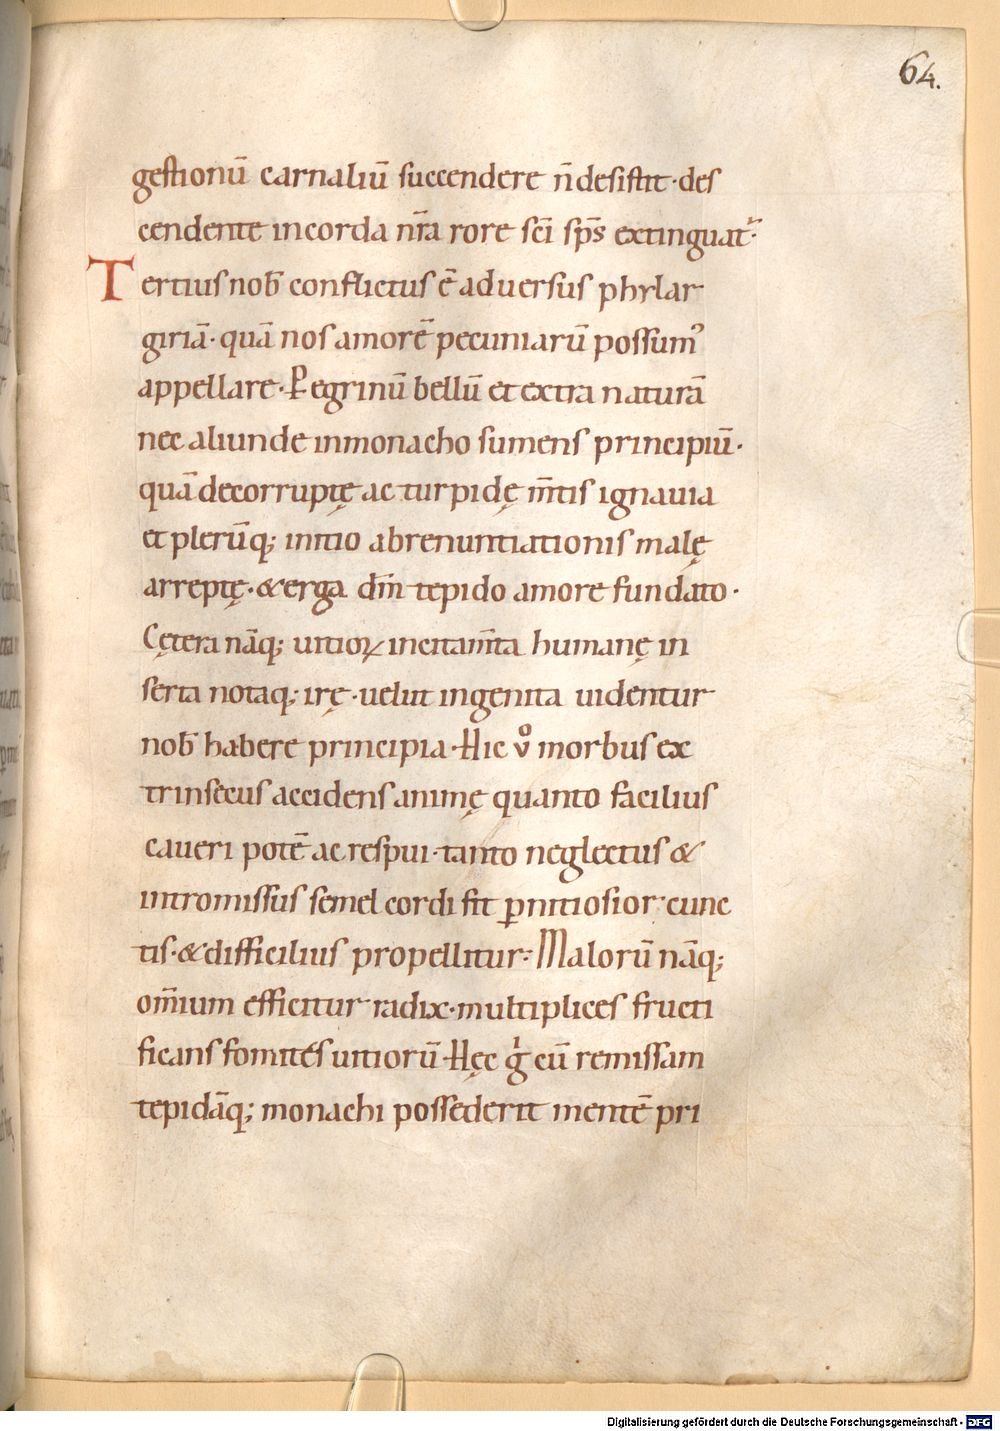 64.
gestionū carnaliū succendere n̄ desistit· des
cendente in corda nr̄a rore sc̄i sp̄s extinguat᷑·
Tertius nob̄ conflictus ē aduersus phylar
giriā· quā nos amorē pecuniarū possumꝰ
appellare· Ꝑegrinū bellū et extra naturā
nec aliunde in monacho sumens principiū·
quā de corruptę ac turpidę m̄tis ignauia
et plerūq; initio abrenuntiationis malę
arreptę· & erga dm̄ tepido amore fundato·
Cętera nāq; uitioꝝ incitam̄ta humanę in
serta notaq; irę· uelut ingenita uidentur
nob̄ habere principia· Hic v̊ morbus ex
trinsecus accidens animę quanto facilius
caueri potē ac respui· tanto neglectus &
intromissus semel cordi fit ꝑnitiosior cunc
tis· & difficilius propellitur· Malorū nāq;
om̄ium efficitur radix· multiplices fructi
ficans fomites uitiorū· Hęc gͥ cū remissam
tepidāq; monachi possederit mentē pri
Digitalisierung gefördert durch die Deutsche Forschungsgemeinschaft - DFG